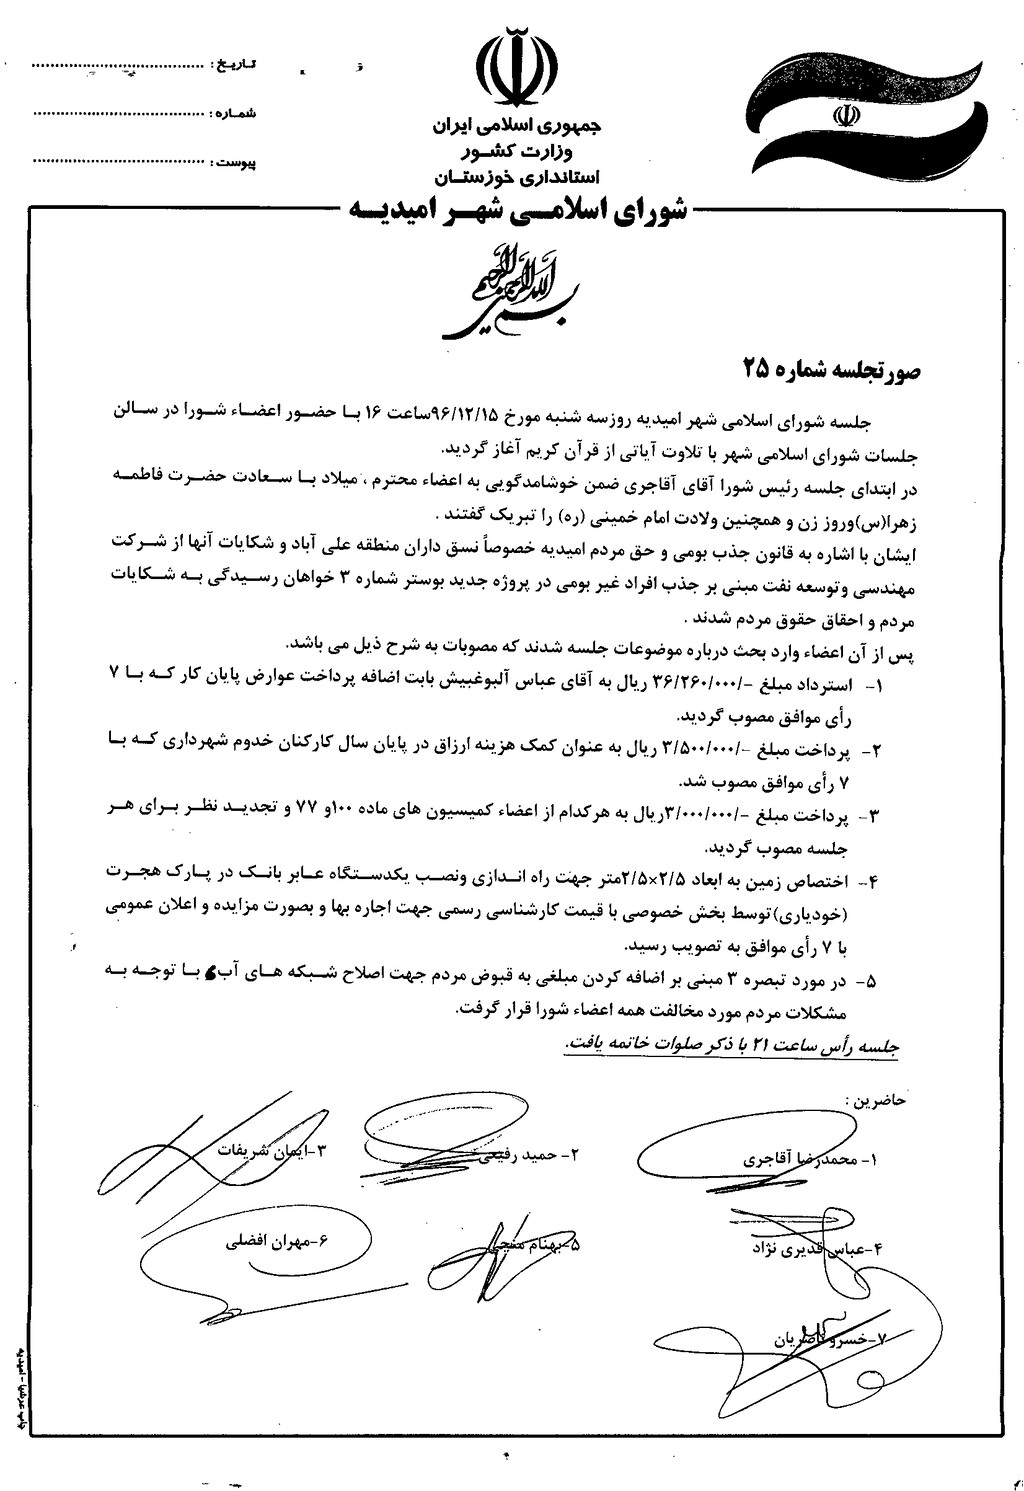 تاریخ : ............................................
شماره : ............................................
پیوست : ............................................
جمهوری اسلامی ایران
وزارت کشور
استانداری خوزستان
شورای اسلامی شهر امیدیه
بسم الله الرحمن الرحیم
صورتجلسه شماره ۲۵
جلسه شورای اسلامی شهر امیدیه روزسه شنبه مورخ ۹۶/۱۲/۱۵ساعت ۱۶ با حضور اعضاء شورا در سالن
جلسات شورای اسلامی شهر با تلاوت آیاتی از قرآن کریم آغاز گردید.
در ابتدای جلسه رئیس شورا آقای آقاجری ضمن خوشامدگویی به اعضاء محترم ، میلاد با سعادت حضرت فاطمه
زهرا(س)وروز زن و همچنین ولادت امام خمینی (ره) را تبریک گفتند .
ایشان با اشاره به قانون جذب بومی و حق مردم امیدیه خصوصاً نسق داران منطقه علی آباد و شکایات آنها از شرکت
مهندسی وتوسعه نفت مبنی بر جذب افراد غیر بومی در پروژه جدید بوستر شماره ۳ خواهان رسیدگی به شکایات
مردم و احقاق حقوق مردم شدند .
پس از آن اعضاء وارد بحث درباره موضوعات جلسه شدند که مصوبات به شرح ذیل می باشد.
۱- استرداد مبلغ -/۳۶/۲۶۰/۰۰۰ ریال به آقای عباس آلبوغبیش بابت اضافه پرداخت عوارض پایان کار که با ۷
رأی موافق مصوب گردید.
۲- پرداخت مبلغ -/۳/۵۰۰/۰۰۰ ریال به عنوان کمک هزینه ارزاق در پایان سال کارکنان خدوم شهرداری که با
۷ رأی موافق مصوب شد.
۳- پرداخت مبلغ -/۳/۰۰۰/۰۰۰ریال به هرکدام از اعضاء کمیسیون های ماده ۱۰۰و ۷۷ و تجدید نظر برای هر
جلسه مصوب گردید.
۴- اختصاص زمین به ابعاد ۲/۵×۲/۵متر جهت راه اندازی ونصب یکدستگاه عابر بانک در پارک هجرت
(خودیاری)توسط بخش خصوصی با قیمت کارشناسی رسمی جهت اجاره بها و بصورت مزایده و اعلان عمومی
با ۷ رأی موافق به تصویب رسید.
۵- در مورد تبصره ۳ مبنی بر اضافه کردن مبلغی به قبوض مردم جهت اصلاح شبکه های آب با توجه به
مشکلات مردم مورد مخالفت همه اعضاء شورا قرار گرفت.
جلسه رأس ساعت ۲۱ با ذکر صلوات خاتمه یافت.
حاضرین :
۱- محمدرضا آقاجری ۲- حمید رفیعی ۳-ایمان شریفات
۴-عباس قدیری نژاد ۵-بهنام ۶-مهران افضلی
۷-خسرو ناصریان
چاپ عرشیا - امیدیه